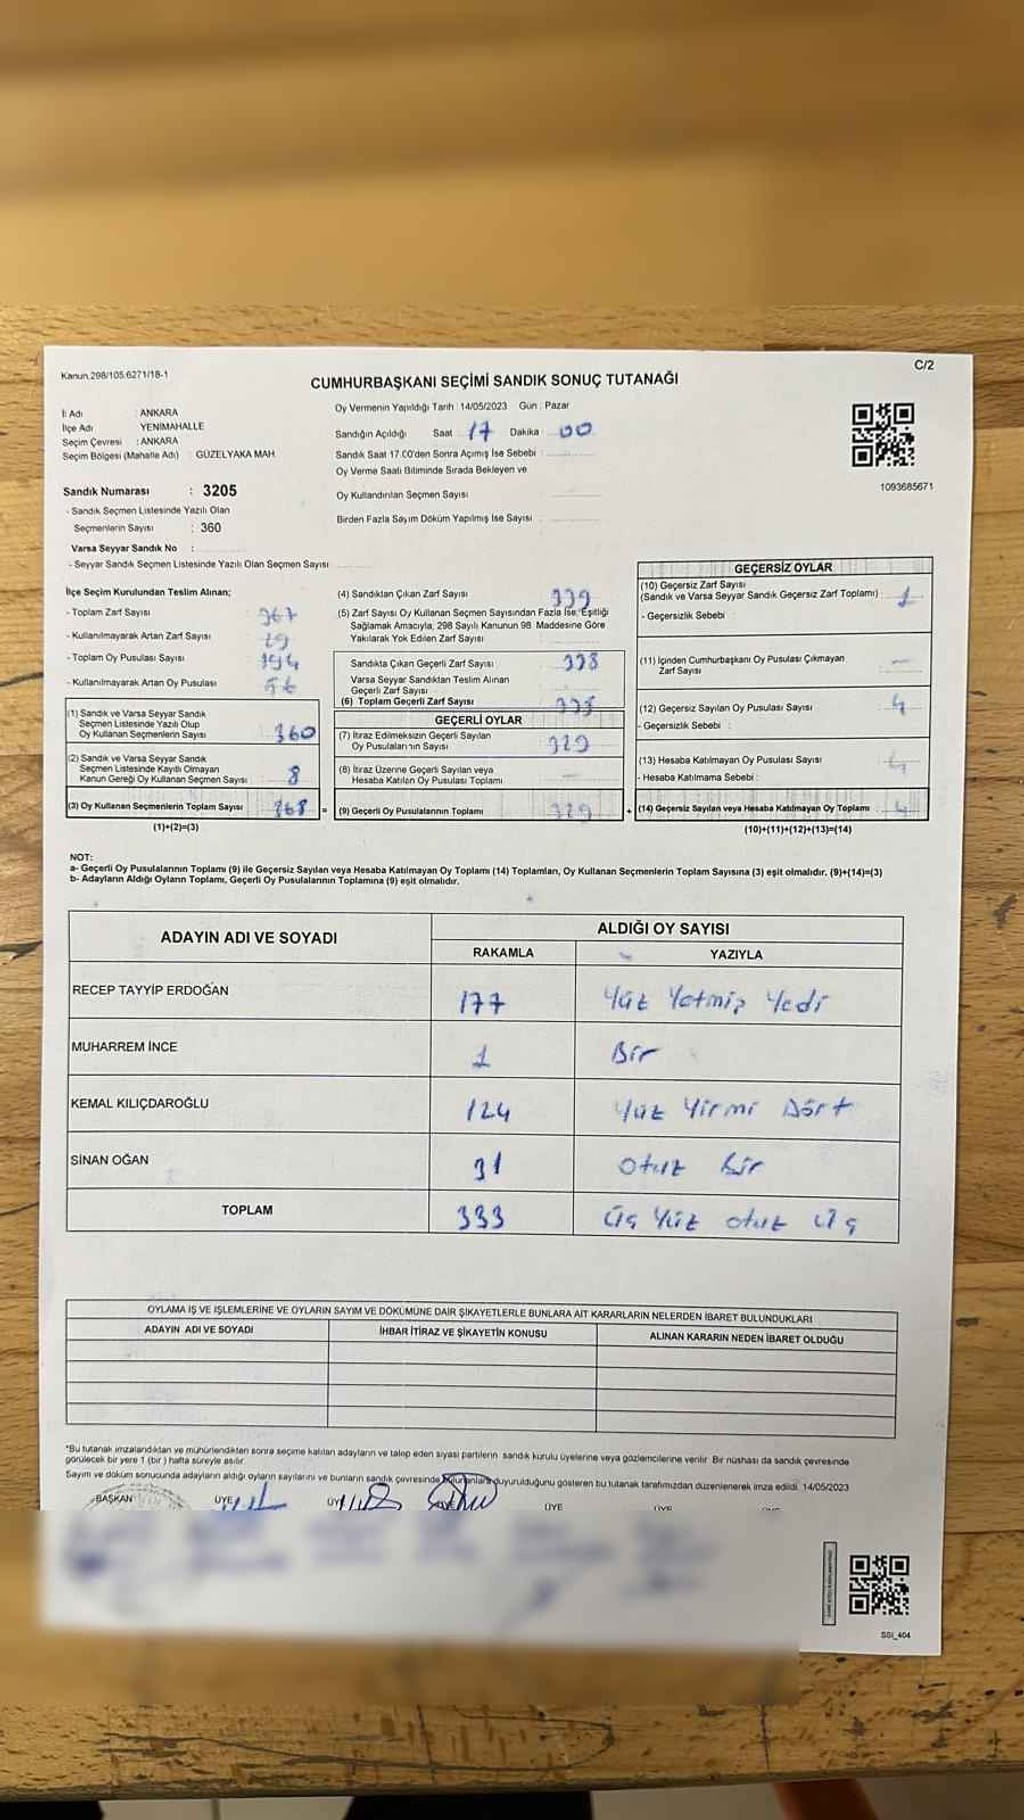 Kanun.298/105.6271/18-1
C/2
CUMHURBAŞKANI SEÇİMİ SANDIK SONUÇ TUTANAĞI
İl Adı : ANKARA
İlçe Adı YENİMAHALLE
Seçim Çevresi : ANKARA
Seçim Bölgesi (Mahalle Adı) GÜZELYAKA MAH.
Oy Vermenin Yapıldığı Tarih : 14/05/2023 Gün : Pazar
Sandığın Açıldığı Saat 17 Dakika 00
Sandık Saat 17.00'den Sonra Açımış İse Sebebi
Oy Verme Saati Bitiminde Sırada Bekleyen ve
Oy Kullandırılan Seçmen Sayısı
Birden Fazla Sayım Döküm Yapılmış İse Sayısı :
1093685671
Sandık Numarası : 3205
- Sandık Seçmen Listesinde Yazılı Olan
Seçmenlerin Sayısı : 360
Varsa Seyyar Sandık No :
- Seyyar Sandık Seçmen Listesinde Yazılı Olan Seçmen Sayısı
İlçe Seçim Kurulundan Teslim Alınan;
- Toplam Zarf Sayısı 367
- Kullanılmayarak Artan Zarf Sayısı
- Toplam Oy Pusulası Sayısı
- Kullanılmayarak Artan Oy Pusulası
(1) Sandık ve Varsa Seyyar Sandık
Seçmen Listesinde Yazılı Olup
Oy Kullanan Seçmenlerin Sayısı 360
(2) Sandık ve Varsa Seyyar Sandık
Seçmen Listesinde Kayıtlı Olmayan
Kanun Gereği Oy Kullanan Seçmen Sayısı 8
(3) Oy Kullanan Seçmenlerin Toplam Sayısı 368 =
(1)+(2)=(3)
(4) Sandıktan Çıkan Zarf Sayısı 339
(5) Zarf Sayısı Oy Kullanan Seçmen Sayısından Fazla İse, Eşitliği
Sağlamak Amacıyla, 298 Sayılı Kanunun 98. Maddesine Göre
Yakılarak Yok Edilen Zarf Sayısı
Sandıkta Çıkan Geçerli Zarf Sayısı 338
Varsa Seyyar Sandıktan Teslim Alınan
Geçerli Zarf Sayısı
(6) Toplam Geçerli Zarf Sayısı
GEÇERLİ OYLAR
(7) İtiraz Edimeksizin Geçerli Sayılan
Oy Pusulalarının Sayısı 329
(8) İtiraz Üzerine Geçerli Sayılan veya
Hesaba Katılan Oy Pusulası Toplamı —
(9) Geçerli Oy Pusulalarının Toplamı 329 +
GEÇERSİZ OYLAR
(10) Geçersiz Zarf Sayısı
(Sandık ve Varsa Seyyar Sandık Geçersiz Zarf Toplamı) 1
- Geçersizlik Sebebi :
(11) İçinden Cumhurbaşkanı Oy Pusulası Çıkmayan
Zarf Sayısı —
(12) Geçersiz Sayılan Oy Pusulası Sayısı 4
- Geçersizlik Sebebi :
(13) Hesaba Katılmayan Oy Pusulası Sayısı
- Hesaba Katılmama Sebebi :
(14) Geçersiz Sayılan veya Hesaba Katılmayan Oy Toplamı
(10)+(11)+(12)+(13)=(14)
NOT:
a- Geçerli Oy Pusulalarının Toplamı (9) ile Geçersiz Sayılan veya Hesaba Katılmayan Oy Toplamı (14) Toplamları, Oy Kullanan Seçmenlerin Toplam Sayısına (3) eşit olmalıdır. (9)+(14)=(3)
b- Adayların Aldığı Oyların Toplamı, Geçerli Oy Pusulalarının Toplamına (9) eşit olmalıdır.
ADAYIN ADI VE SOYADI
ALDIĞI OY SAYISI
RAKAMLA YAZIYLA
RECEP TAYYİP ERDOĞAN 177 Yüz Yetmiş Yedi
MUHARREM İNCE 1 Bir
KEMAL KILIÇDAROĞLU 124 Yüz Yirmi Dört
SİNAN OĞAN 31 Otuz Bir
TOPLAM 333 Üç Yüz otuz üç
OYLAMA İŞ VE İŞLEMLERİNE VE OYLARIN SAYIM VE DÖKÜMÜNE DAİR ŞİKAYETLERLE BUNLARA AİT KARARLARIN NELERDEN İBARET BULUNDUKLARI
ADAYIN ADI VE SOYADI İHBAR İTİRAZ VE ŞİKAYETİN KONUSU ALINAN KARARIN NEDEN İBARET OLDUĞU
*Bu tutanak imzalandıktan ve mühürlendikten sonra seçime katılan adayların ve talep eden siyasi partilerin sandık kurulu üyelerine veya gözlemcilerine verilir. Bir nüshası da sandık çevresinde
görülecek bir yere 1 (bir) hafta süreyle asılır.
Sayım ve döküm sonucunda adayların aldığı oyların sayılarını ve bunların sandık çevresinde bulunanlara duyurulduğunu gösteren bu tutanak tarafımızdan düzenlenerek imza edildi. 14/05/2023
BAŞKAN ÜYE ÜYE ÜYE ÜYE
SSİ_404